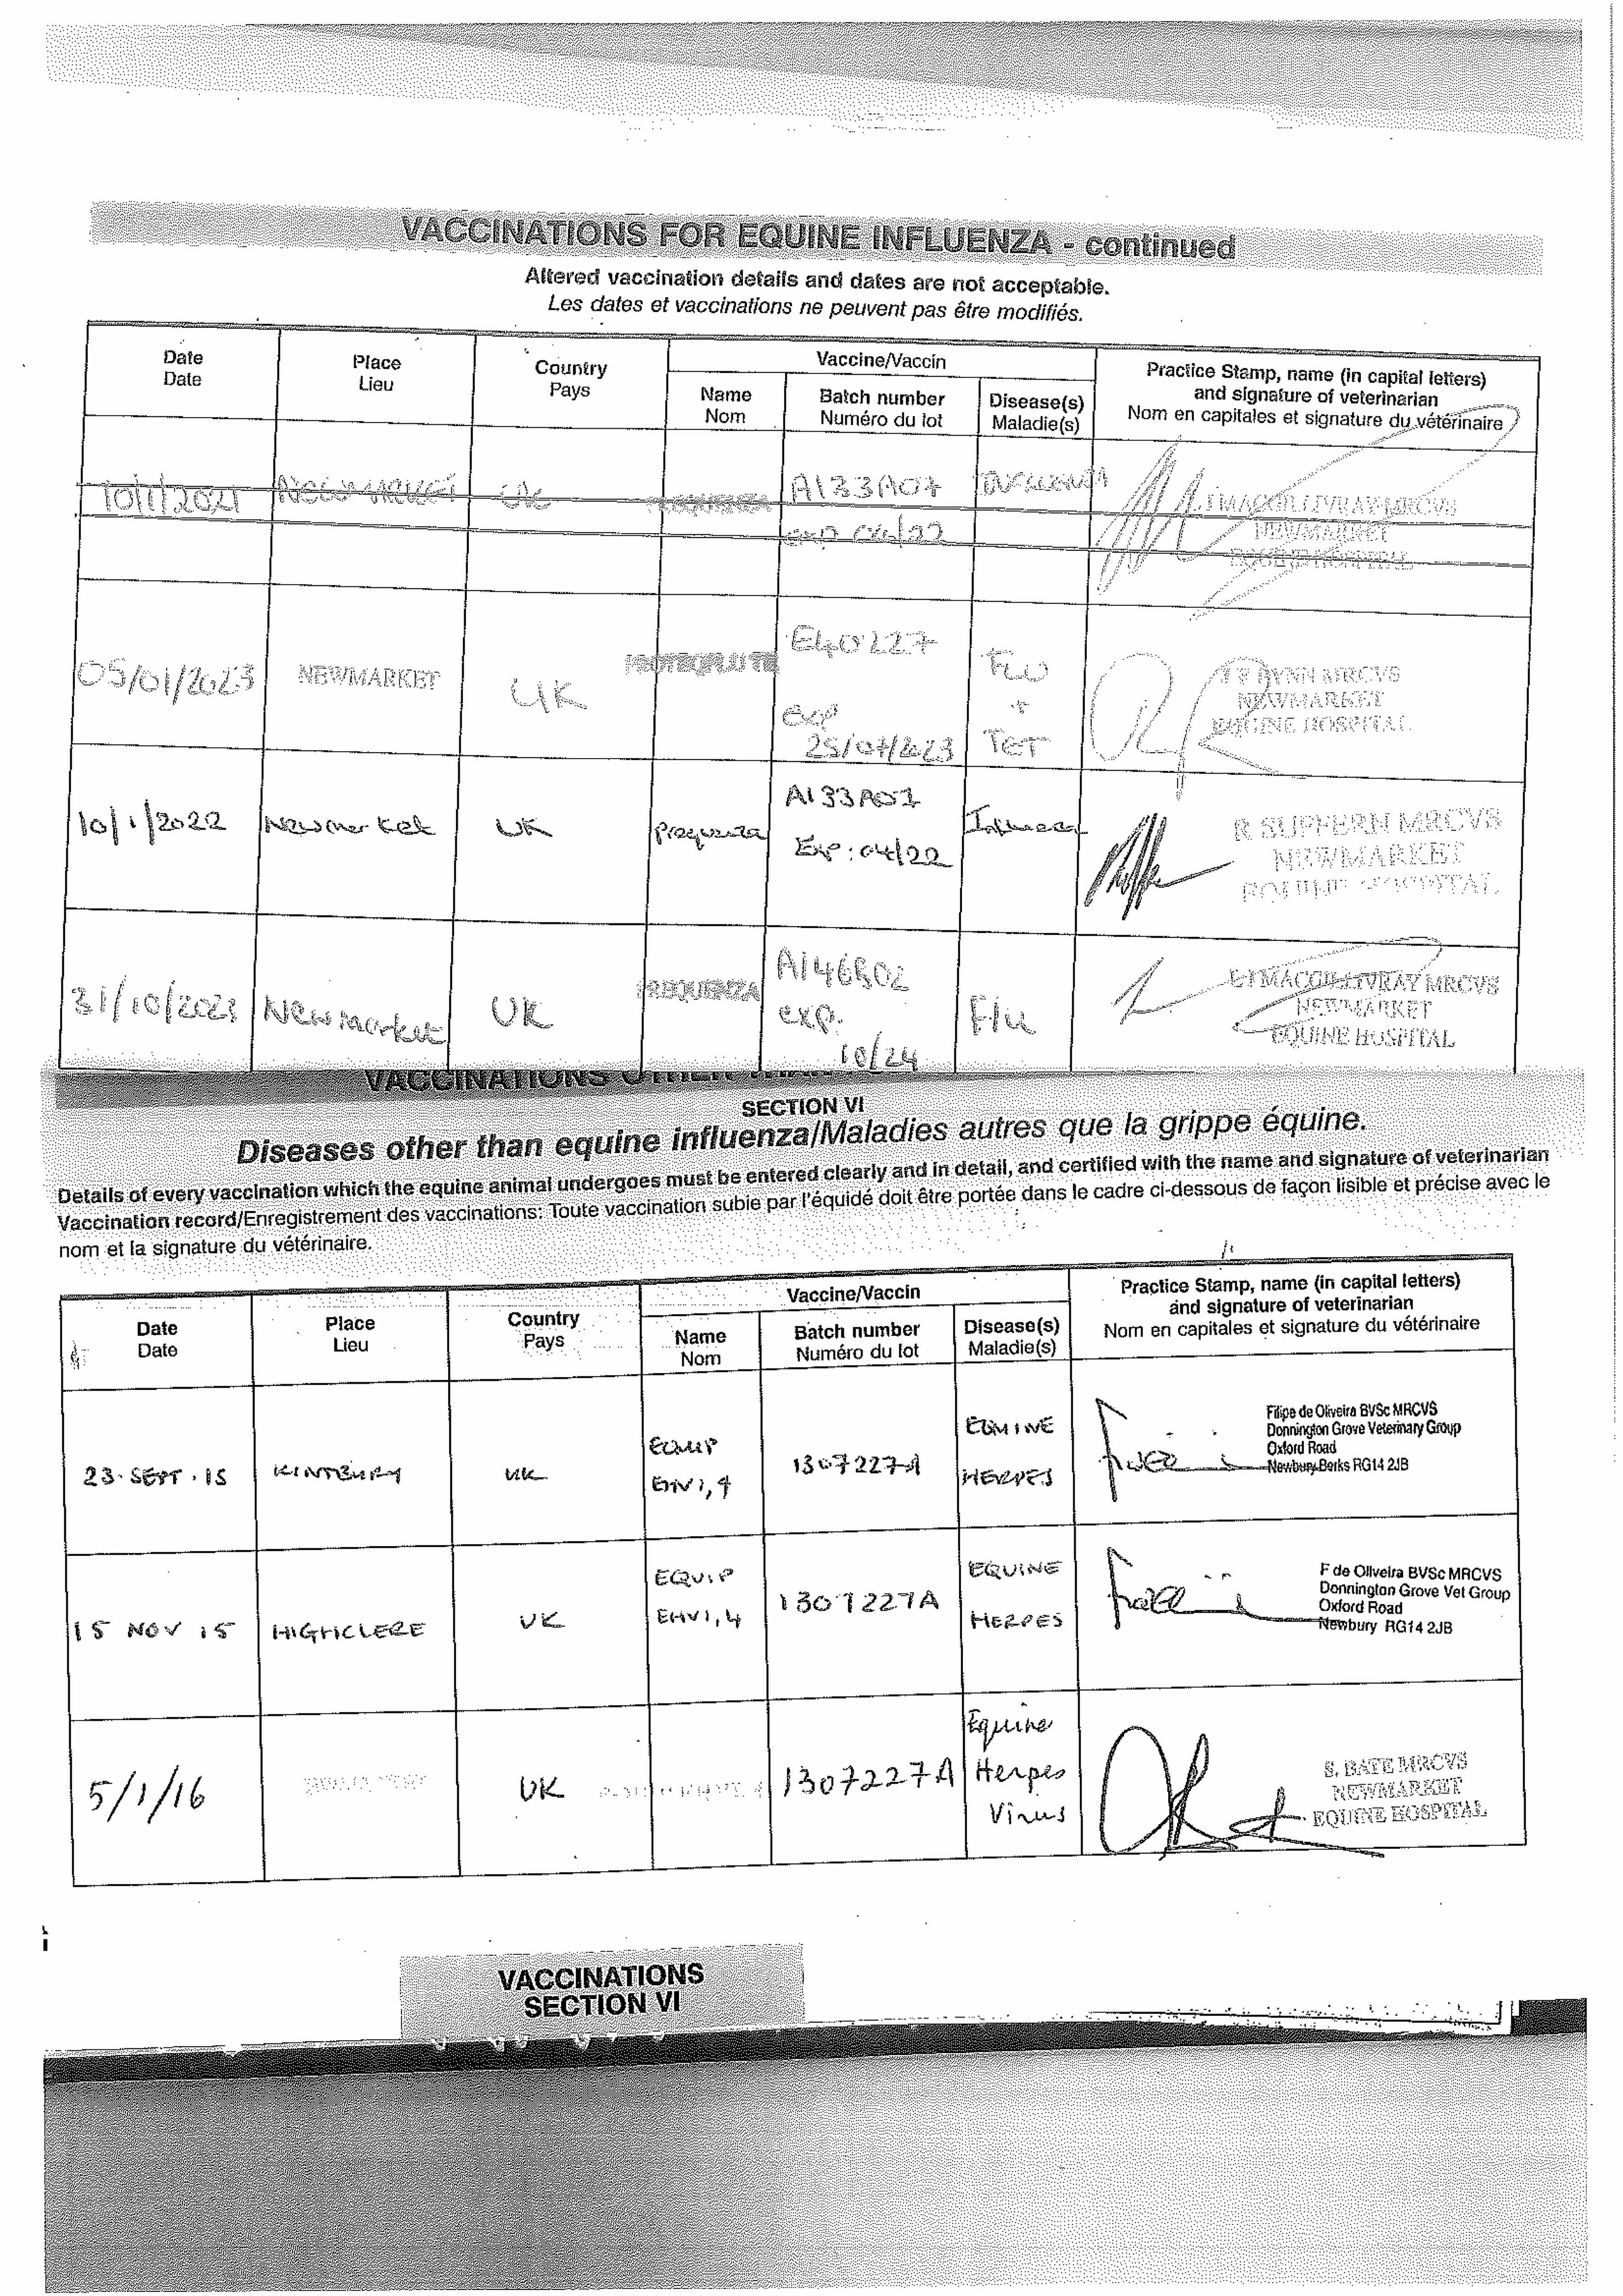 VACCINATIONS FOR EQUINE INFLUENZA - continued
Altered vaccination details and dates are not acceptable.
Les dates et vaccinations ne peuvent pas être modifiés.
Date
Date
Place
Lieu
Country
Pays
Vaccine/Vaccin
Name
Nom
Batch number
Numéro du lot
Disease(s)
Maladie(s)
Practice Stamp, name (in capital letters)
and signature of veterinarian
Nom en capitales et signature du vétérinaire
10/1/2021 NEWMARKET UK PREQUENZA A133A07 INFLUENZA
exp 04/22
MACGILLIVRAY MRCVS
NEWMARKET
EQUINE HOSPITAL
05/01/2023 NEWMARKET UK PROTEQFLU TE E40227
exp
25/07/2023
FLU
+
TET
RYNN MRCVS
NEWMARKET
EQUINE HOSPITAL
10/1/2022 Newmarket UK Prequenza A133A07 Influenza
Exp: 04/22
R SUFFERN MRCVS
NEWMARKET
EQUINE HOSPITAL
31/10/2023 Newmarket UK PREQUENZA A146B02
exp.
10/24
Flu
MACGILLIVRAY MRCVS
NEWMARKET
EQUINE HOSPITAL
VACCINATIONS
SECTION VI
Diseases other than equine influenza/Maladies autres que la grippe équine.
Details of every vaccination which the equine animal undergoes must be entered clearly and in detail, and certified with the name and signature of veterinarian
Vaccination record/Enregistrement des vaccinations: Toute vaccination subie par l'équidé doit être portée dans le cadre ci-dessous de façon lisible et précise avec le
nom et la signature du vétérinaire.
Date
Date
Place
Lieu
Country
Pays
Vaccine/Vaccin
Name
Nom
Batch number
Numéro du lot
Disease(s)
Maladie(s)
Practice Stamp, name (in capital letters)
and signature of veterinarian
Nom en capitales et signature du vétérinaire
23. SEPT. 15 KINTBURY UK
EQUIP
EHV 1,4
1307227A
EQUINE
HERPES
Filipe de Oliveira BVSc MRCVS
Donnington Grove Veterinary Group
Oxford Road
Newbury Berks RG14 2JB
15 NOV 15 HIGHCLERE UK
EQUIP
EHV1,4
1307227A
EQUINE
HERPES
F de Oliveira BVSc MRCVS
Donnington Grove Vet Group
Oxford Road
Newbury RG14 2JB
5/1/16 UK 1307227A
Equine
Herpes
Virus
S. BATE MRCVS
NEWMARKET
EQUINE HOSPITAL
VACCINATIONS
SECTION VI